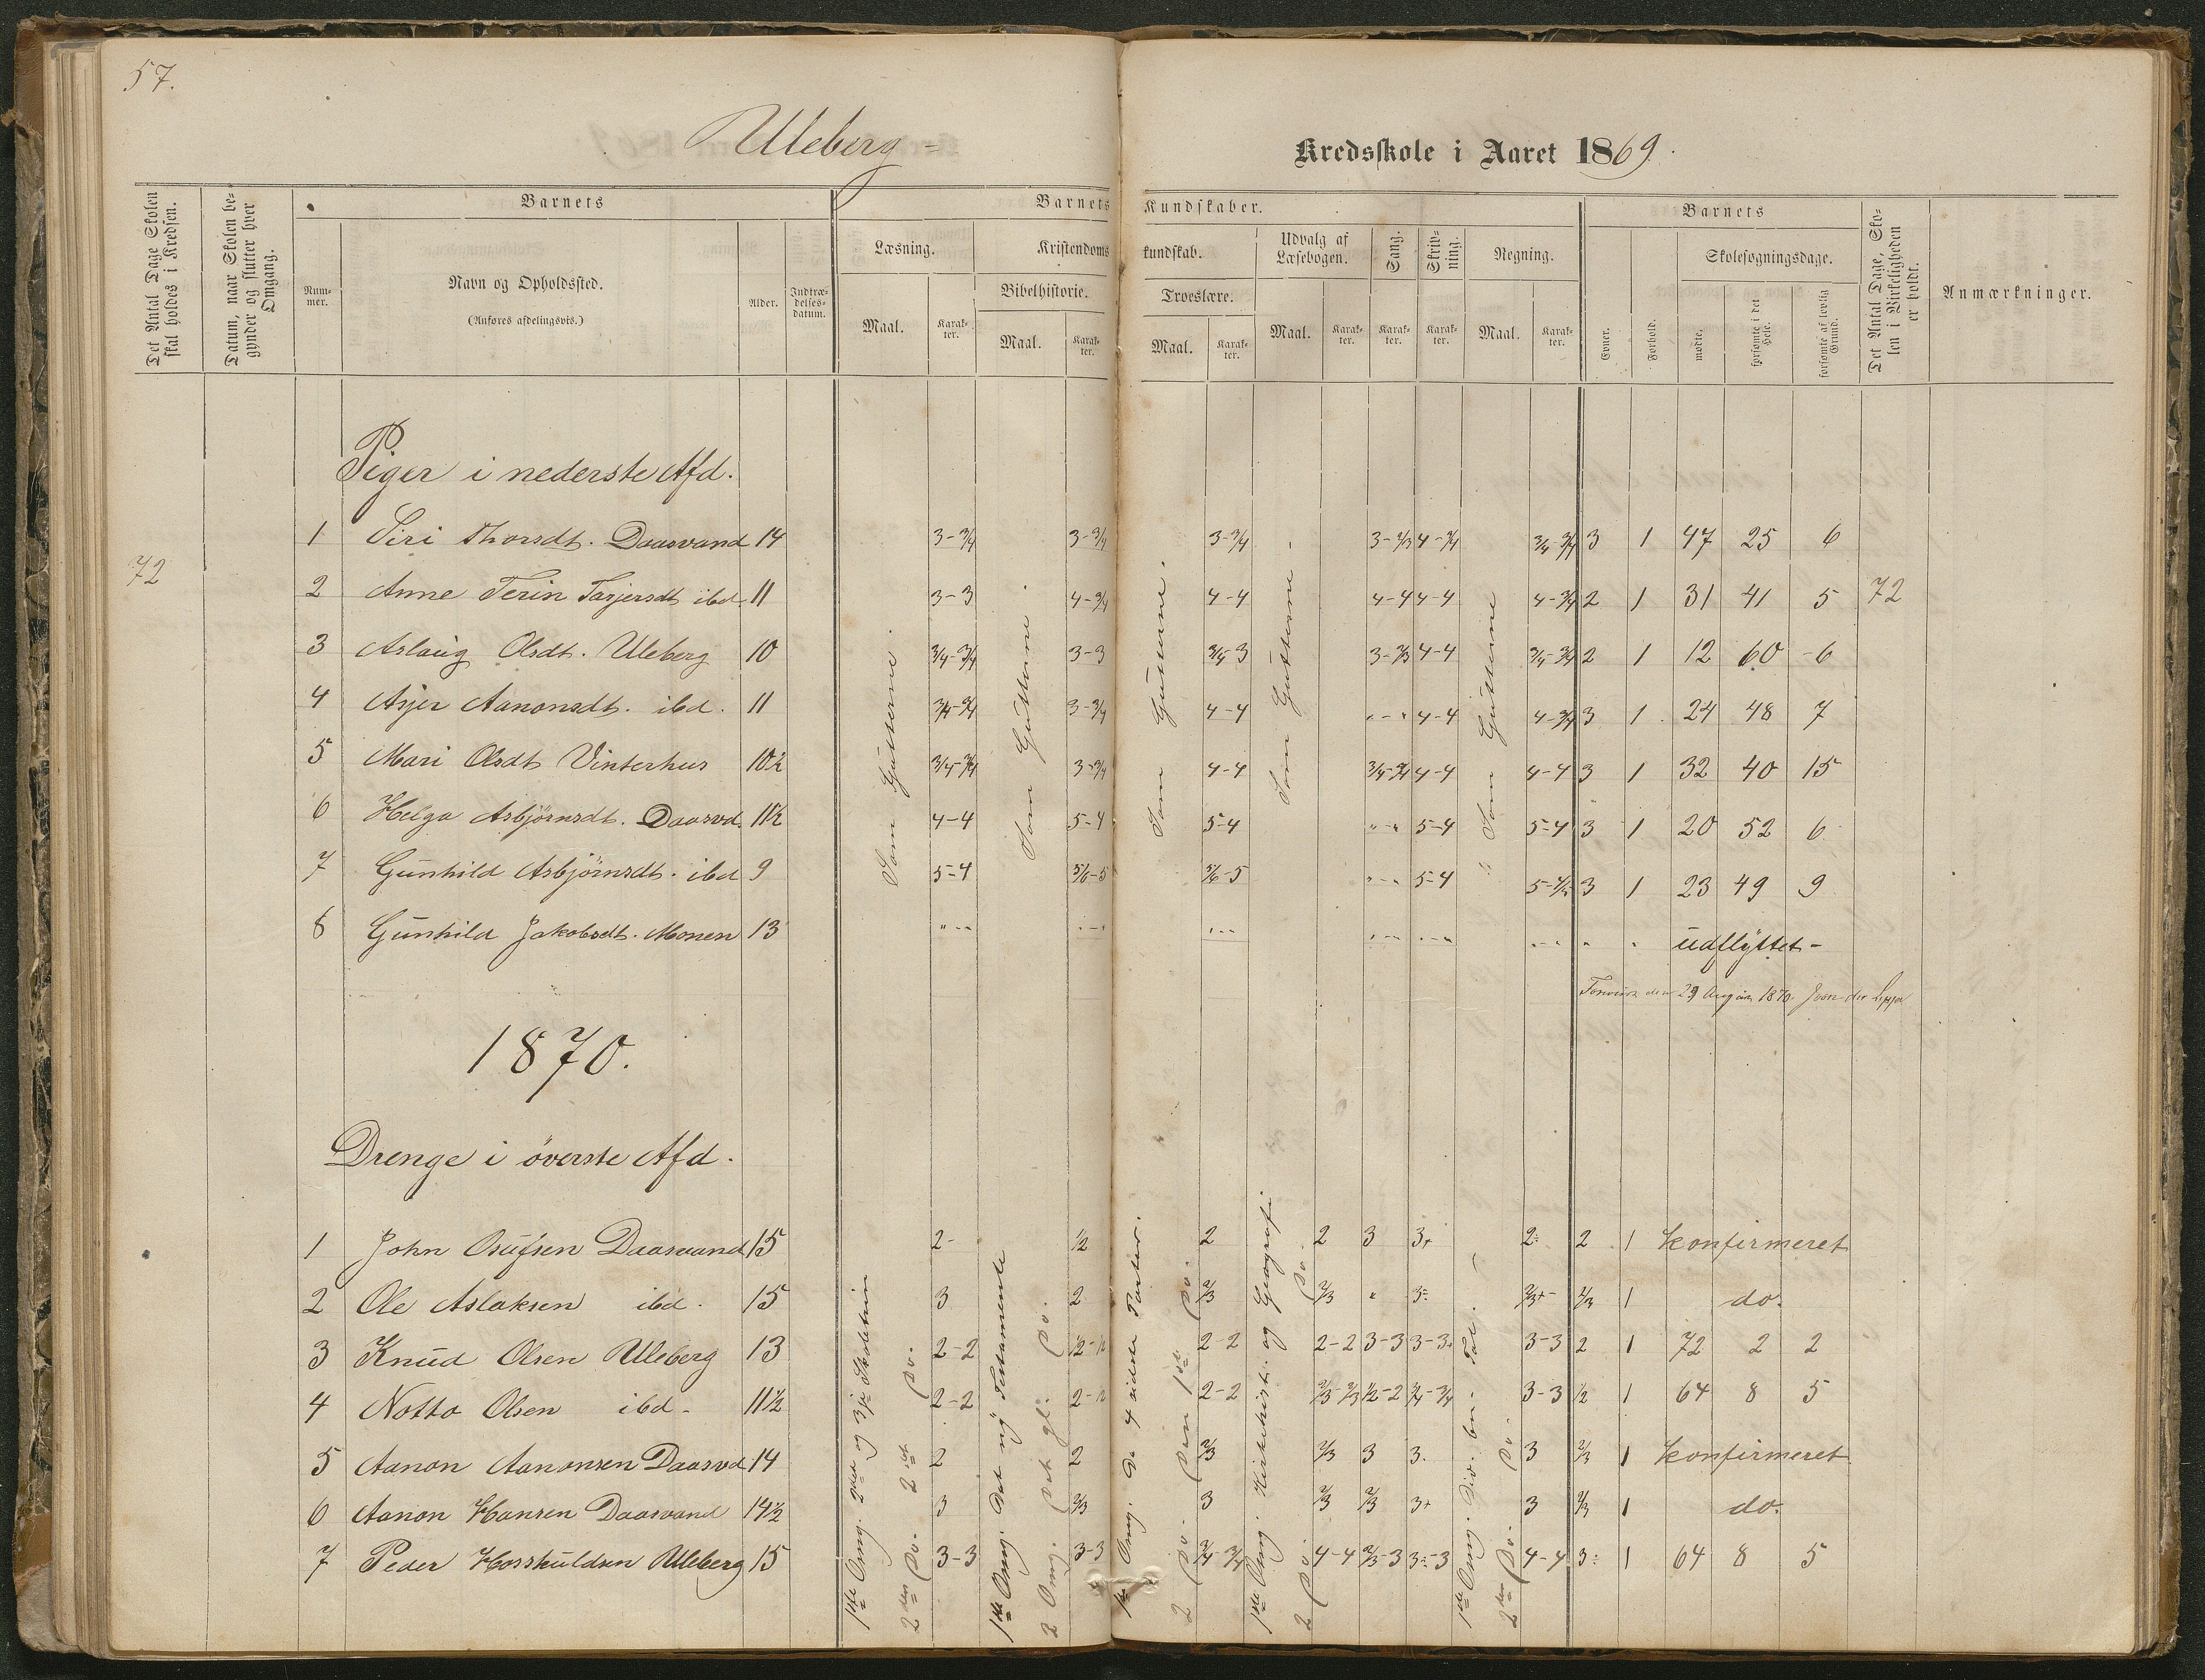 57.
Uleberg -
Kredsskole i Aaret 1869.
Det Antal Dage Skolen skal holdes i Kredsen.
Datum, naar Skolen begynder og slutter hver Omgang.
Barnets
Nummer.
Navn og Opholdssted.
(Anføres afdelingsvis.)
Alder.
Indtrædelsesdatum.
Barnets Kundskaber.
Læsning.
Kristendomskundskab.
Bibelhistorie.
Troeslære.
Udvalg af Læsebogen.
Sang.
Skrivning.
Regning.
Maal. Karakter. Maal. Karakter. Maal. Karakter. Maal. Karakter. Karakter. Karakter. Maal. Karakter.
Barnets
Evner.
Forhold.
Skolesøgningsdage.
mødte.
forsømte i det Hele.
forsømte af lovlig Grund.
Det Antal Dage, Skolen i Virkeligheden er holdt.
Anmærkninger.
Piger i nederste Afd.
72
Som Gutterne.
Som Gutterne.
Som Gutterne.
Som Gutterne -
Som Gutterne
1 Siri Thorsdt. Daasvand 14 3-3/4 3-3/4 3-3/4 3-2/3 4-3/4 3/4-3/4 3 1 47 25 6
2 Anne Terin Tarjersdt ibd 11 3-3 4-3/4 4-4 4-4 4-4 4-3/4 2 1 31 41 5 72
3 Aslaug Olsdt. Uleberg 10 3/4-3/4 3-3 3/4-3 3-2/3 4-4 3/4-3/4 2 1 12 60 -6
4 Asjer Aanonsdt. ibd. 11 3/4-3/4 3-3/4 4-4 "-" 4-4 4-3/4 3 1 24 48 7
5 Mari Olsdt Vinterhus 10½ 3/4-3/4 3-3/4 4-4 3/4-3/4 4-4 4-4 3 1 32 40 15
6 Helga Asbjørnsdt. Daasvd. 11½ 4-4 5-4 5-4 "-" 5-4 5-4 3 1 20 52 6
7 Gunhild Asbjørnsdt. ibd 9 5-4 5/6-5 5/6-5 "-" 5-4 5-4/5 3 1 23 49 9
8 Gunhild Jakobsdt. Monen 13 "-" "-" "-" "-" "-" "-" " " udflyttet -
den 29 August 1870.
1870.
Drenge i överste Afd.
1ste Omg. 2den og 3je Skoletrin
2den Do. 2det Do.
1ste Omg. Det ny Testamente
2 Omg. Det gl. Do.
1ste Omg. De 4 sidste Parter.
2 Do. Den 1ste Do.
1ste Omg. Kirkehist. og Geografi
2 Do. Do.
1ste Omg. Div. bn. Tal.
2den Do. Do.
1 John Osufsen Daasvand 15 2- ½ 2 2 3 3+ 2÷ 2 1 konfirmeret
2 Ole Aslaksen ibd. 15 3 2 2/3 2/3 " 3÷ 2/3+- 2/3 1 do.
3 Knud Olsen Uleberg 13 2-2 ½-½ 2-2 2-2 3-3 3-3+ 3-3 2 1 72 2 2
4 Notto Olsen ibd - 11½ 2-2 2-½ 2-2 2/3-2/3 ½-2 3/4-3/4 3-3 ½ 1 64 8 5
5 Aanon Aanonsen Daasvd 14 2 2 2/3 2/3 3 3. 3 2/3 1 konfirmeret
6 Aanon Hansen Daasvand 14½ 3 2/3 3 2/3 2/3 3+ 3 2/3 1 do.
7 Peder Horskuldsen Uleberg 15 3-3 3-3 3/4-3/4 4-4 2/3-3 3÷-3 4-4 3÷ 1 64 8 5